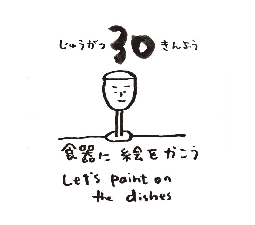 じゅうがつ 30 きんよう
食器に 絵をかこう
Let's paint on
the dishes